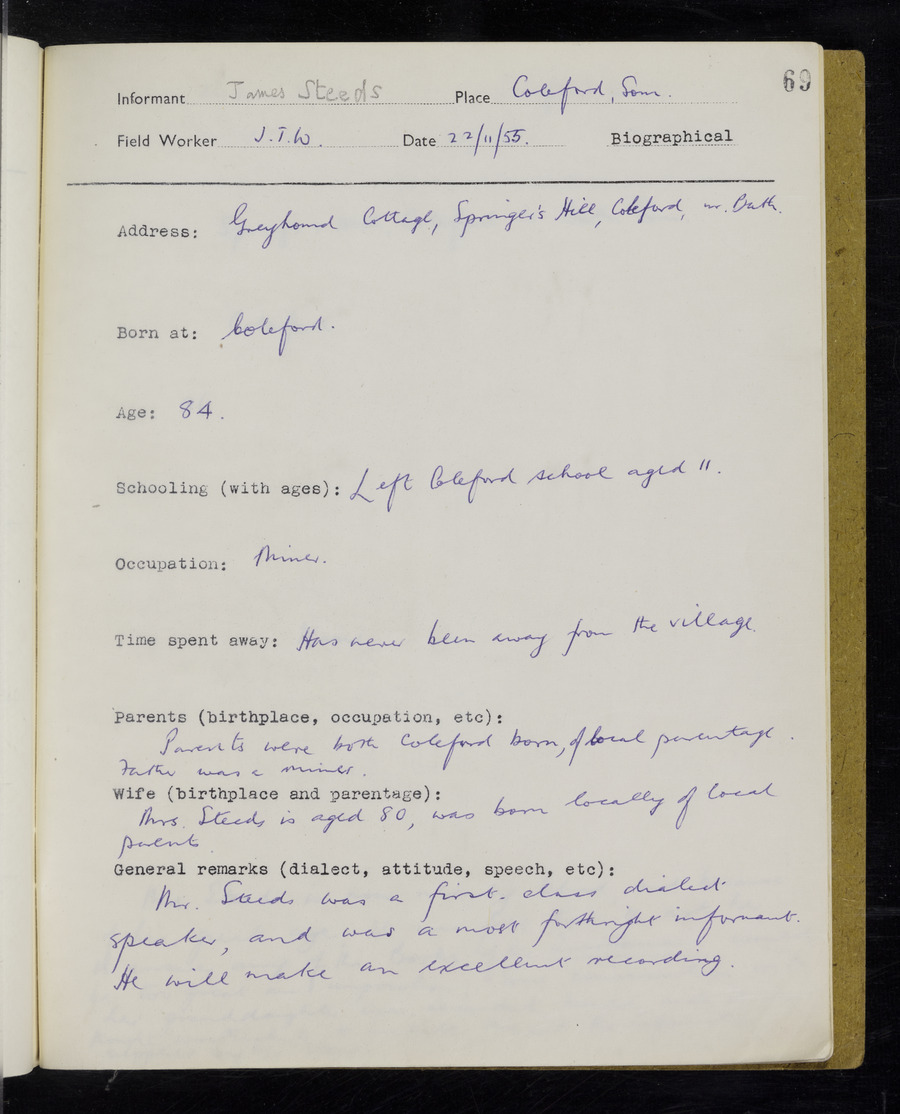 69
Informant James Steeds Place Coleford, Som.
Field Worker J.T.W. Date 22/11/55. Biographical
Address: Greyhound Cottage, Springer's Hill, Coleford, nr. Bath.
Born at: Coleford.
Age: 84.
Schooling (with ages): Left Coleford school aged 11.
Occupation: Miner.
Time spent away: Has never been away from the village.
Parents (birthplace, occupation, etc):
Parents were both Coleford born, of local parentage.
Father was a miner.
Wife (birthplace and parentage):
Mrs. Steeds is aged 80, was born locally of local
parents.
General remarks (dialect, attitude, speech, etc):
Mr. Steeds was a first-class dialect
speaker, and was a most forthright informant.
He will make an excellent recording.